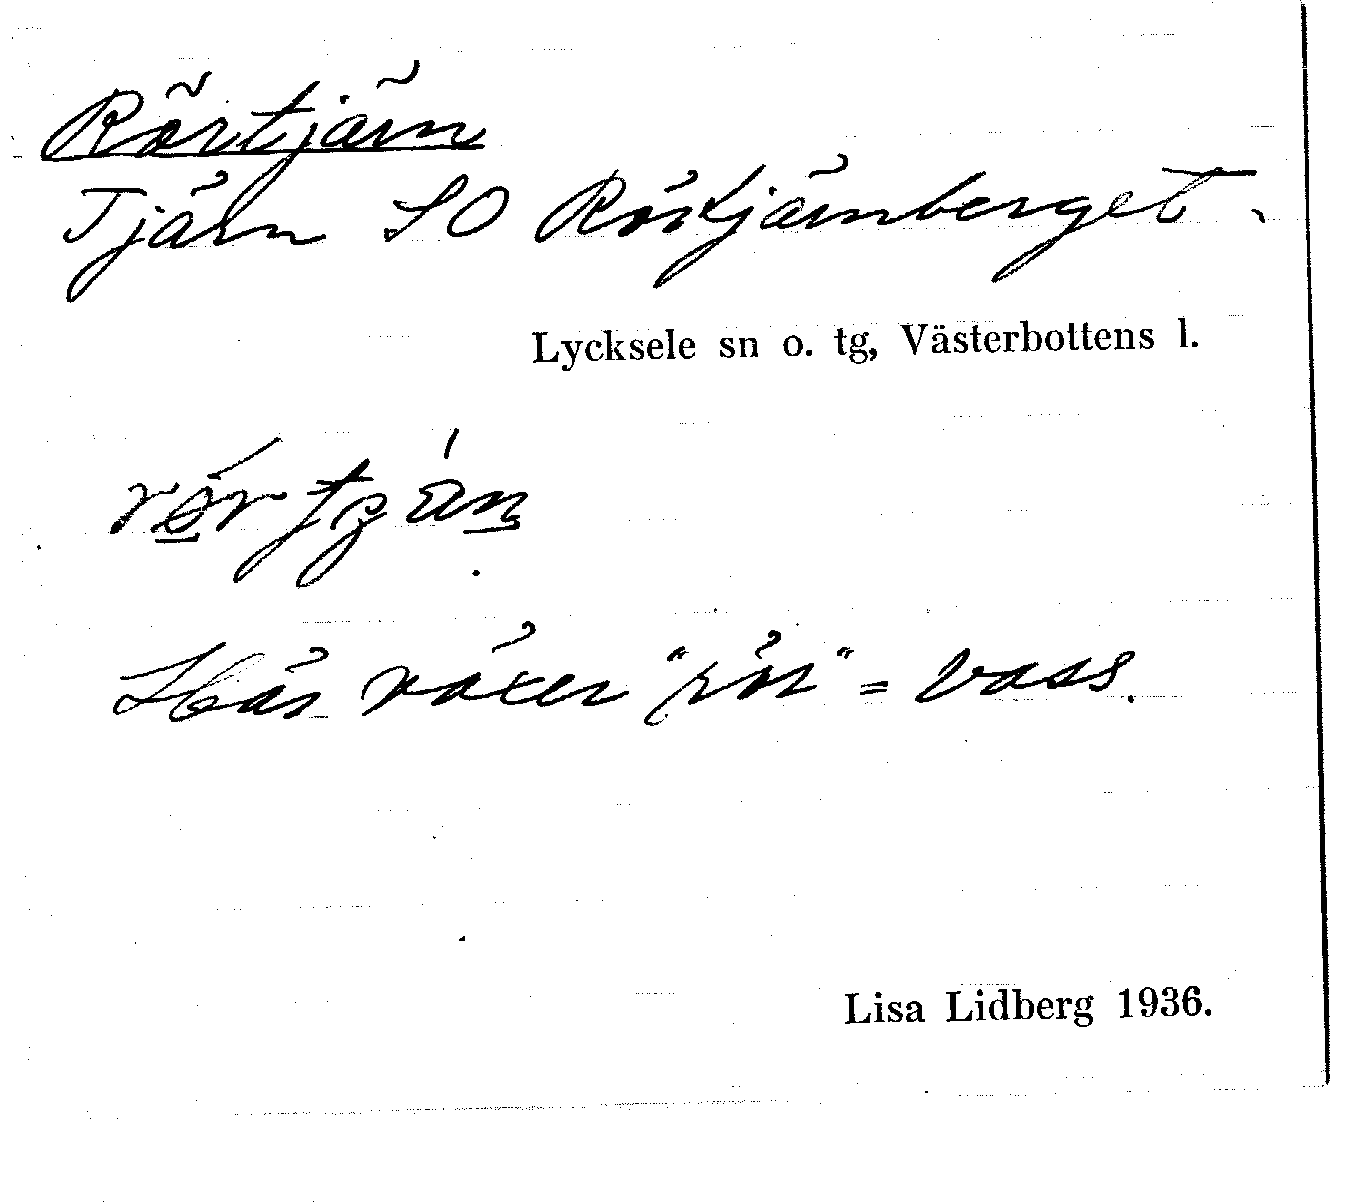 Rörtjärn
Tjärn SO Rörtjärnberget.
Lycksele sn o. tg, Västerbottens l.
Här växer "rör" = vass.
Lisa Lidberg 1936.